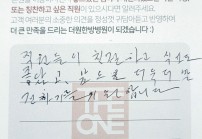 또는 칭찬하고 싶은 직원이 있으시다면 알려주세요.
고객 여러분의 소중한 의견을 정성껏 귀담아듣고 반영하여
더 큰 만족을 드리는 더원한방병원이 되겠습니다 :)
직원들이 친절하고 식사도
좋았고 앞으로 더욱더 발
전하기를 기원합니다
THE
ONE